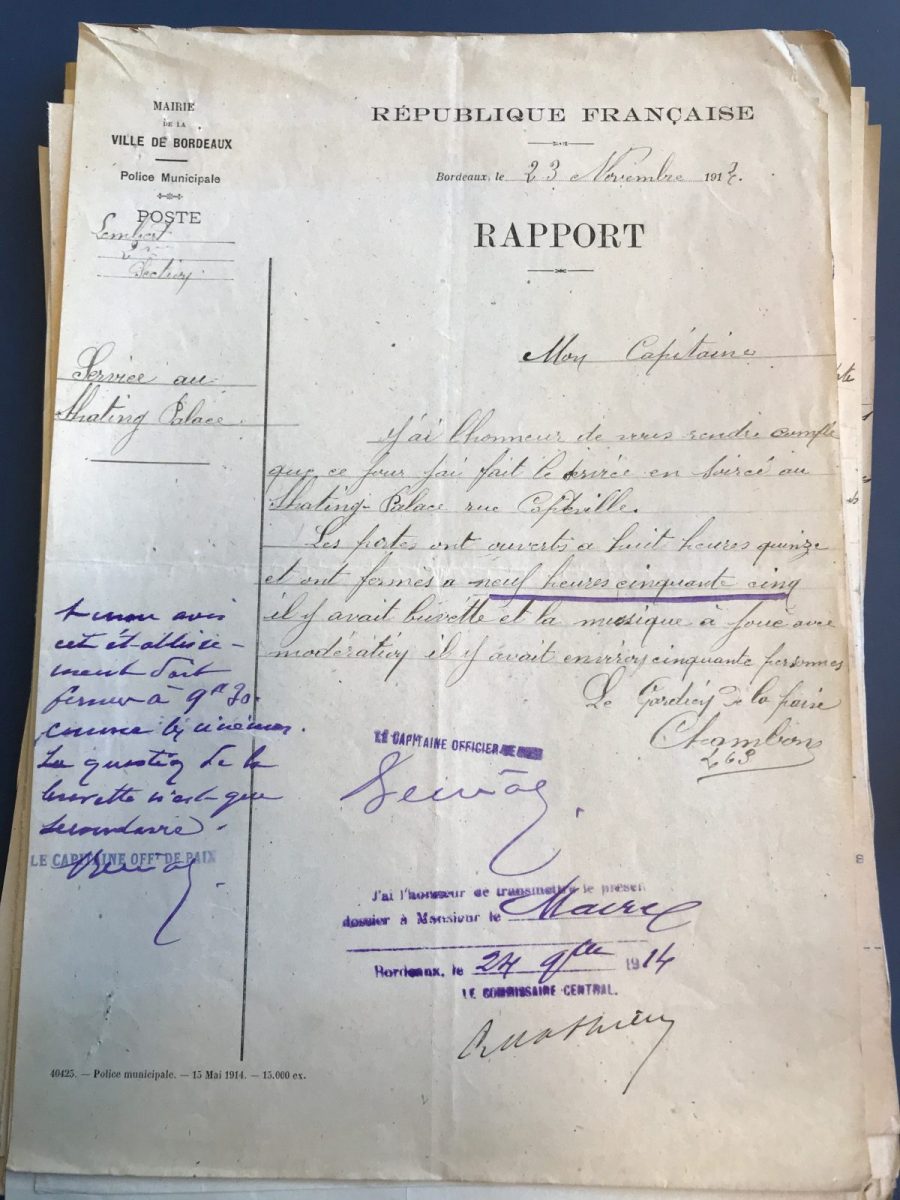 MAIRIE
DE LA
VILLE DE BORDEAUX
Police Municipale
POSTE
Lembert
2me
Section
RÉPUBLIQUE FRANÇAISE
Bordeaux, le 23 Novembre 191
RAPPORT
Service au
Skating Palace
Mon Capitaine
J'ai l'honneur de vous rendre compte
que ce jour j'ai fait le service en soirée au
Skating-Palace rue Capdeville.
Les portes ont ouverts a huit heures quinze
et ont fermés a neuf heures cinquante cinq
il y avait buvette et la musique à joué avec
modération il y avait environ cinquante personnes
Le Gardien de la paix
Chambon
263
A mon avis
cet établisse-
ment doit
fermer à 9h 30
comme les cinémas.
La question de la
buvette n'est que
secondaire.
LE CAPITAINE OFFr DE PAIX
LE CAPITAINE OFFICIER DE PAIX
J'ai l'honneur de transmettre le présent
dossier à Monsieur le Maire
Bordeaux, le 24 9bre 1914
LE COMMISSAIRE CENTRAL.
40425. — Police municipale. — 15 Mai 1914. — 15.000 ex.